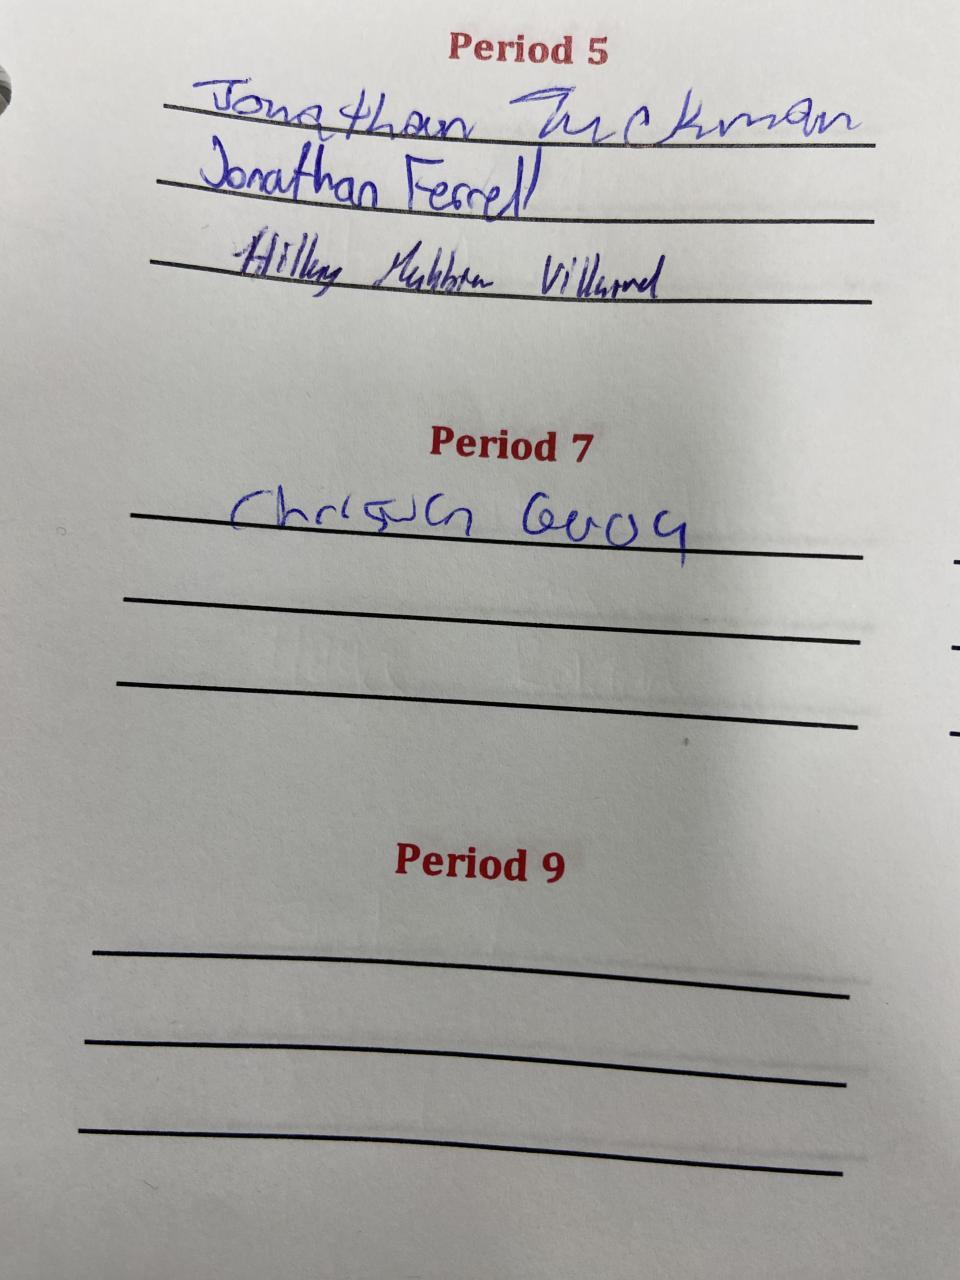 Period 5
Jonathan Tuckman
Jonathan Ferrell
Hillary
Period 7
Christian
Period 9